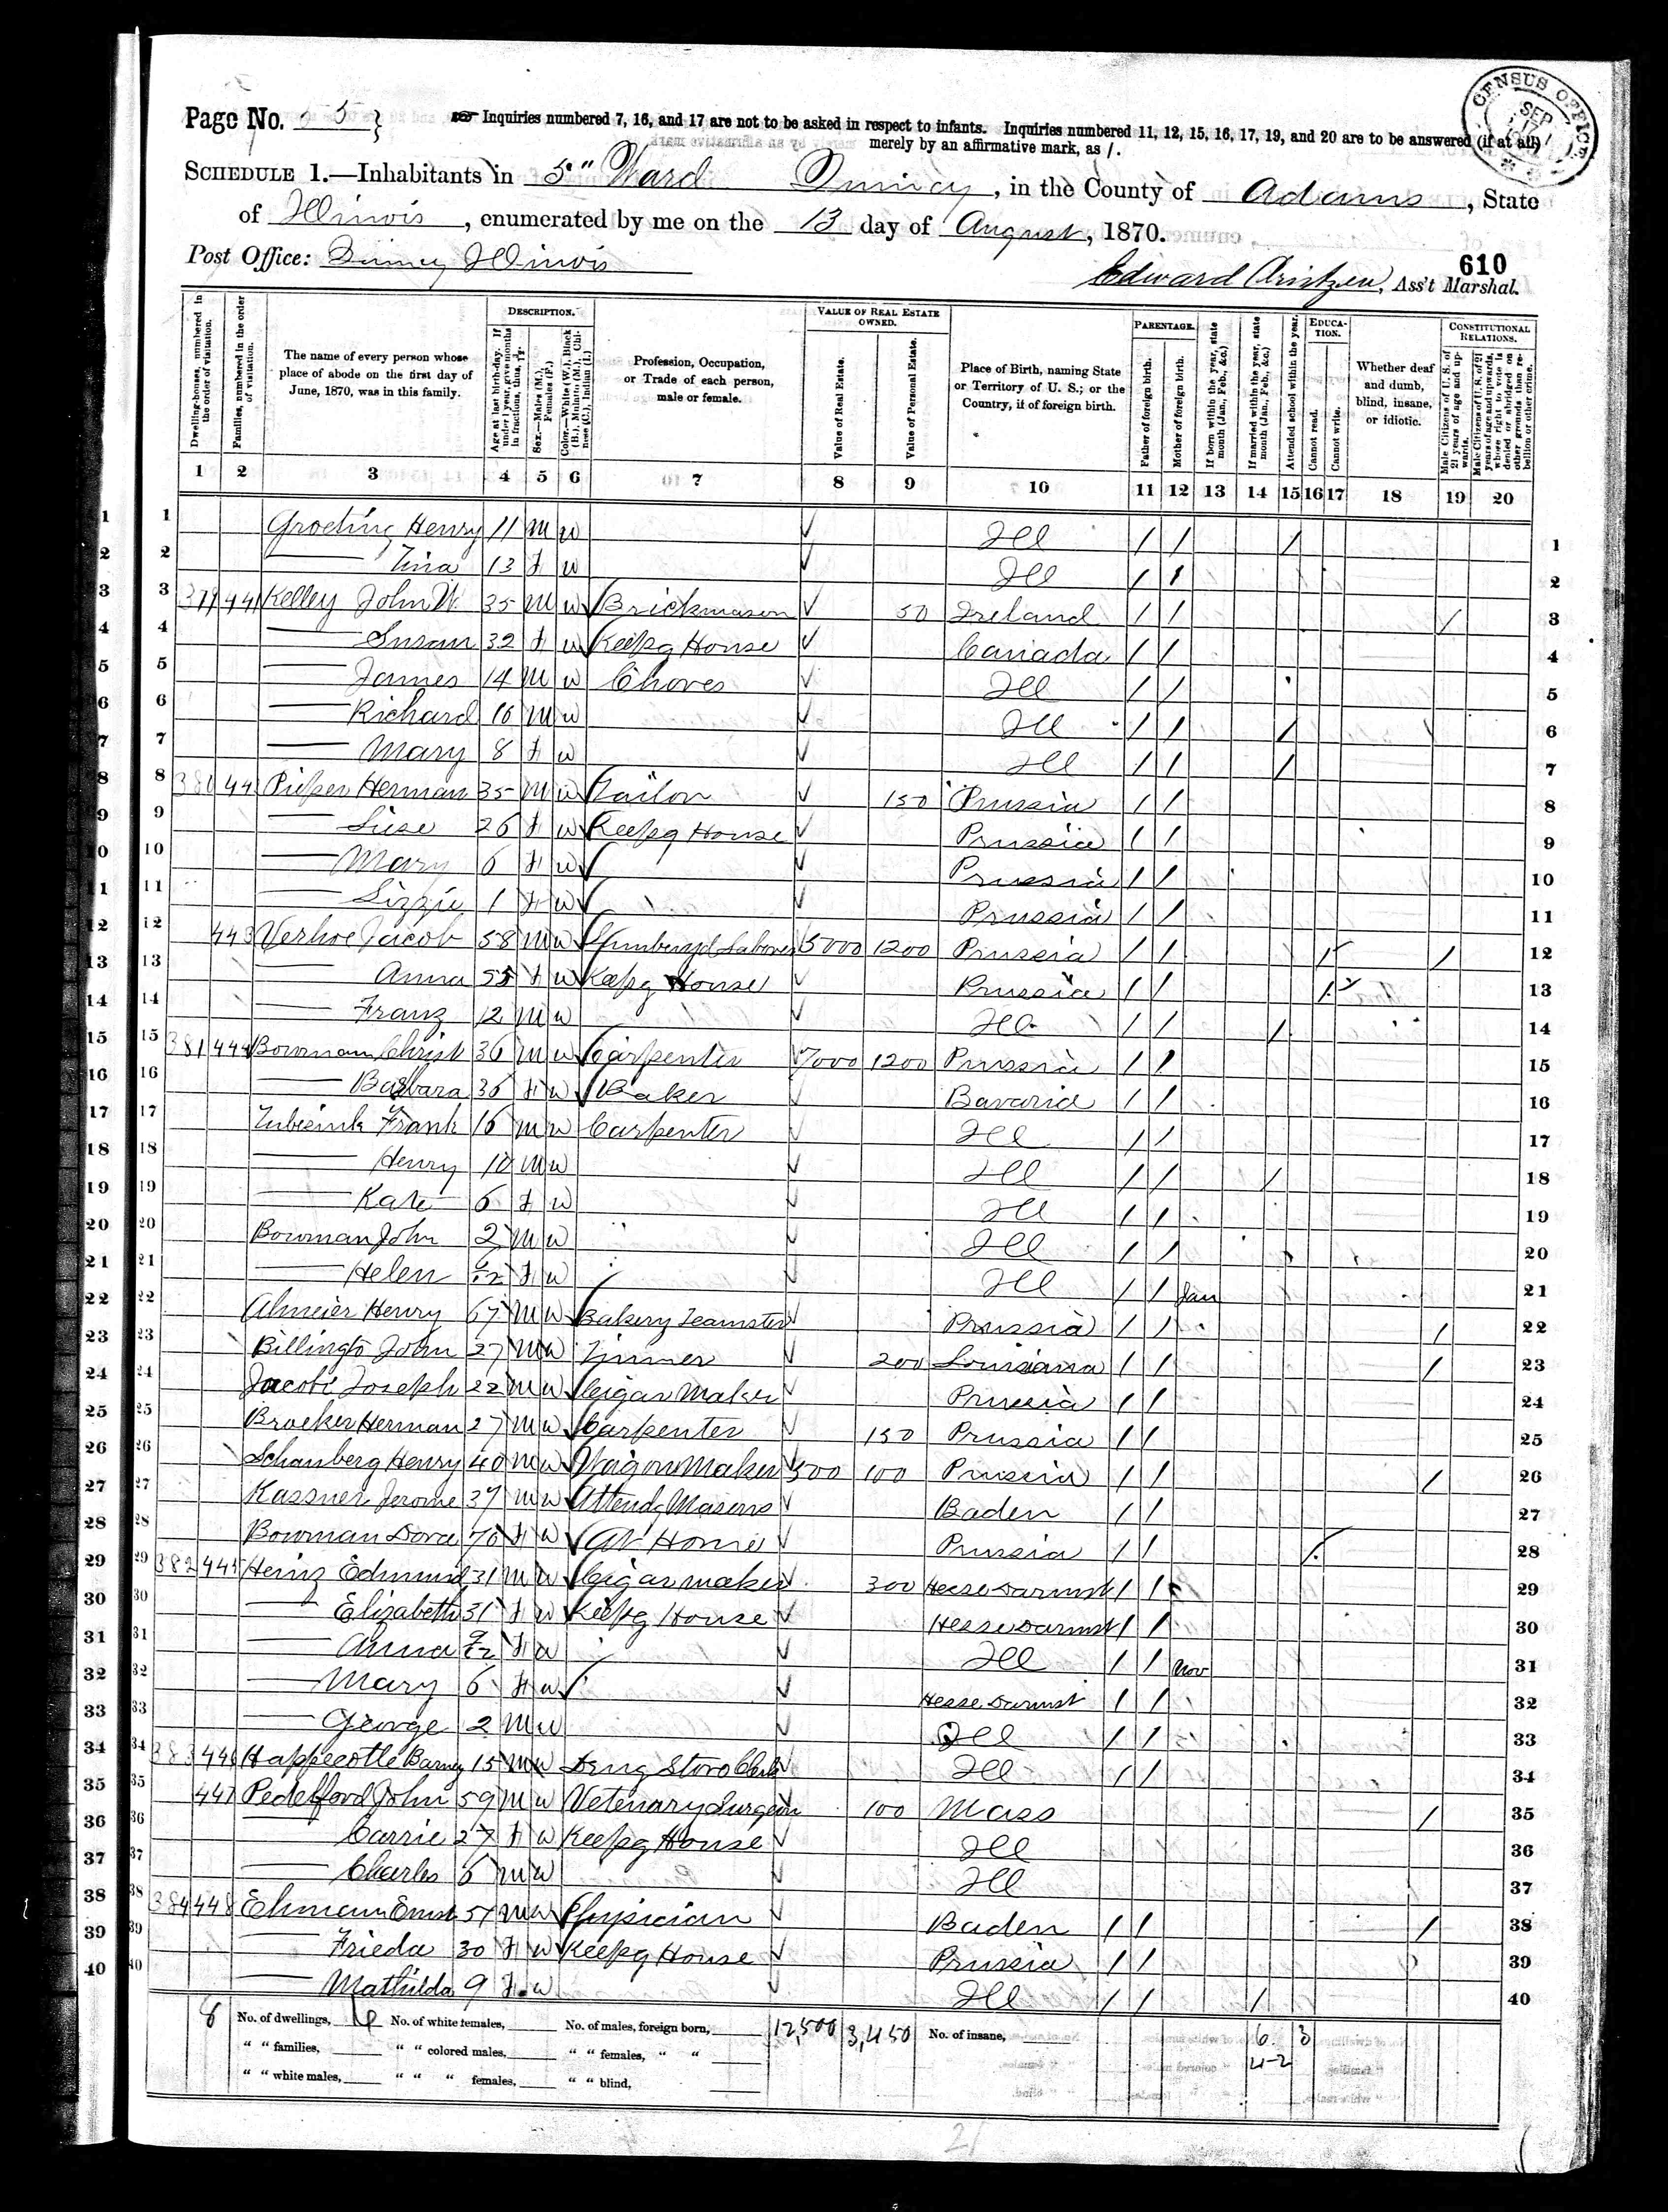 CENSUS OFFICE
SEP
17
Page No. 55
Inquiries numbered 7, 16, and 17 are not to be asked in respect to infants. Inquiries numbered 11, 12, 15, 16, 17, 19, and 20 are to be answered (if at all)
merely by an affirmative mark, as /.
SCHEDULE 1.—Inhabitants in 5" Ward Quincy, in the County of Adams, State
of Illinois, enumerated by me on the 13 day of August, 1870.
Post Office: Quincy Illinois
610
Edward Arntzen, Ass't Marshal.
Dwelling-houses, numbered in the order of visitation.
Families, numbered in the order of visitation.
The name of every person whose place of abode on the first day of June, 1870, was in this family.
DESCRIPTION.
Age at last birth-day. If under 1 year, give months in fractions, thus, 3/12.
Sex.—Males (M.), Females (F.)
Color.—White (W.), Black (B.), Mulatto (M.), Chinese (C.), Indian (I.)
Profession, Occupation, or Trade of each person, male or female.
VALUE OF REAL ESTATE OWNED.
Value of Real Estate.
Value of Personal Estate.
Place of Birth, naming State or Territory of U. S.; or the Country, if of foreign birth.
PARENTAGE.
Father of foreign birth.
Mother of foreign birth.
If born within the year, state month (Jan., Feb., &c.)
If married within the year, state month (Jan., Feb., &c.)
Attended school within the year.
EDUCATION.
Cannot read.
Cannot write.
Whether deaf and dumb, blind, insane, or idiotic.
CONSTITUTIONAL RELATIONS.
Male Citizens of U. S. of 21 years of age and upwards.
Male Citizens of U. S. of 21 years of age and upwards, whose right to vote is denied or abridged on other grounds than rebellion or other crime.
1 2 3 4 5 6 7 8 9 10 11 12 13 14 15 16 17 18 19 20
1 1 Groeting Henry 11 M W Ill / / / 1
2 2 Tina 13 F W Ill / / 2
3 3 379 441 Kelley John W. 35 M W Brickmason 50 Ireland / / / 3
4 4 Susan 32 F W Keepg House Canada / / 4
5 5 James 14 M W Chores Ill / / 5
6 6 Richard 10 M W Ill / / / 6
7 7 Mary 8 F W Ill / / / 7
8 8 380 442 Pieper Herman 35 M W Tailor 150 Prussia / / 8
9 9 Liese 26 F W Keepg House Prussia / / 9
10 10 Mary 6 F W Prussia / / 10
11 11 Lizzie 1 F W Prussia / / 11
12 12 443 Verhoe Jacob 58 M W Lumberyd Laborer 5000 1200 Prussia / / / / 12
13 13 Anna 55 F W Keepg House Prussia / / / 13
14 14 Franz 12 M W Ill / / / 14
15 15 381 444 Bowman Christ 36 M W Carpenter 7000 1200 Prussia / / 15
16 16 Barbara 36 F W Baker Bavaria / / 16
17 17 Frank 16 M W Carpenter Ill / / 17
18 18 Henry 10 M W Ill / / / 18
19 19 Kate 6 F W Ill / / 19
20 20 Bowman John 2 M W Ill / / 20
21 21 Helen F W Ill / / Jan 21
22 22 Almeier Henry 67 M W Bakery Teamster Prussia / / / 22
23 23 John 27 M W 200 Louisiana / / / 23
24 24 Jacobi Joseph 22 M W Cigar Maker Prussia / / 24
25 25 Broeker Herman 27 M W Carpenter 150 Prussia / / 25
26 26 Schanberg Henry 40 M W Wagon Maker 500 100 Prussia / / / 26
27 27 Kassner Jerome 37 M W Attends Masons Baden / / 27
28 28 Bowman Dora 70 F W At Home Prussia / / / 28
29 29 382 445 Heinz Edmund 31 M W Cigar maker 300 Hesse Darmst / / 29
30 30 Elizabeth 31 F W Keepg House Hesse Darmst / / 30
31 31 Anna F W Ill / / Nov 31
32 32 Mary 6 F W Hesse Darmst / / 32
33 33 George 2 M W Ill / / 33
34 34 383 446 Happecotte Barney 15 M W Drug Store Clerk Ill / / 34
35 35 447 Pedelford John 59 M W Vetenary Surgeon 100 Mass / 35
36 36 Carrie 27 F W Keepg House Ill 36
37 37 Charles 6 M W Ill 37
38 38 384 448 Ehmann Ernst 51 M W Physician Baden / / / 38
39 39 Frieda 30 F W Keepg House Prussia / / 39
40 40 Mathilda 9 F W Ill / / / 40
8 No. of dwellings, No. of white females, No. of males, foreign born, 12,500 3,450 No. of insane, 6 3
" " families, " " colored males, " " females, " "
" " white males, " " " females, " " blind,